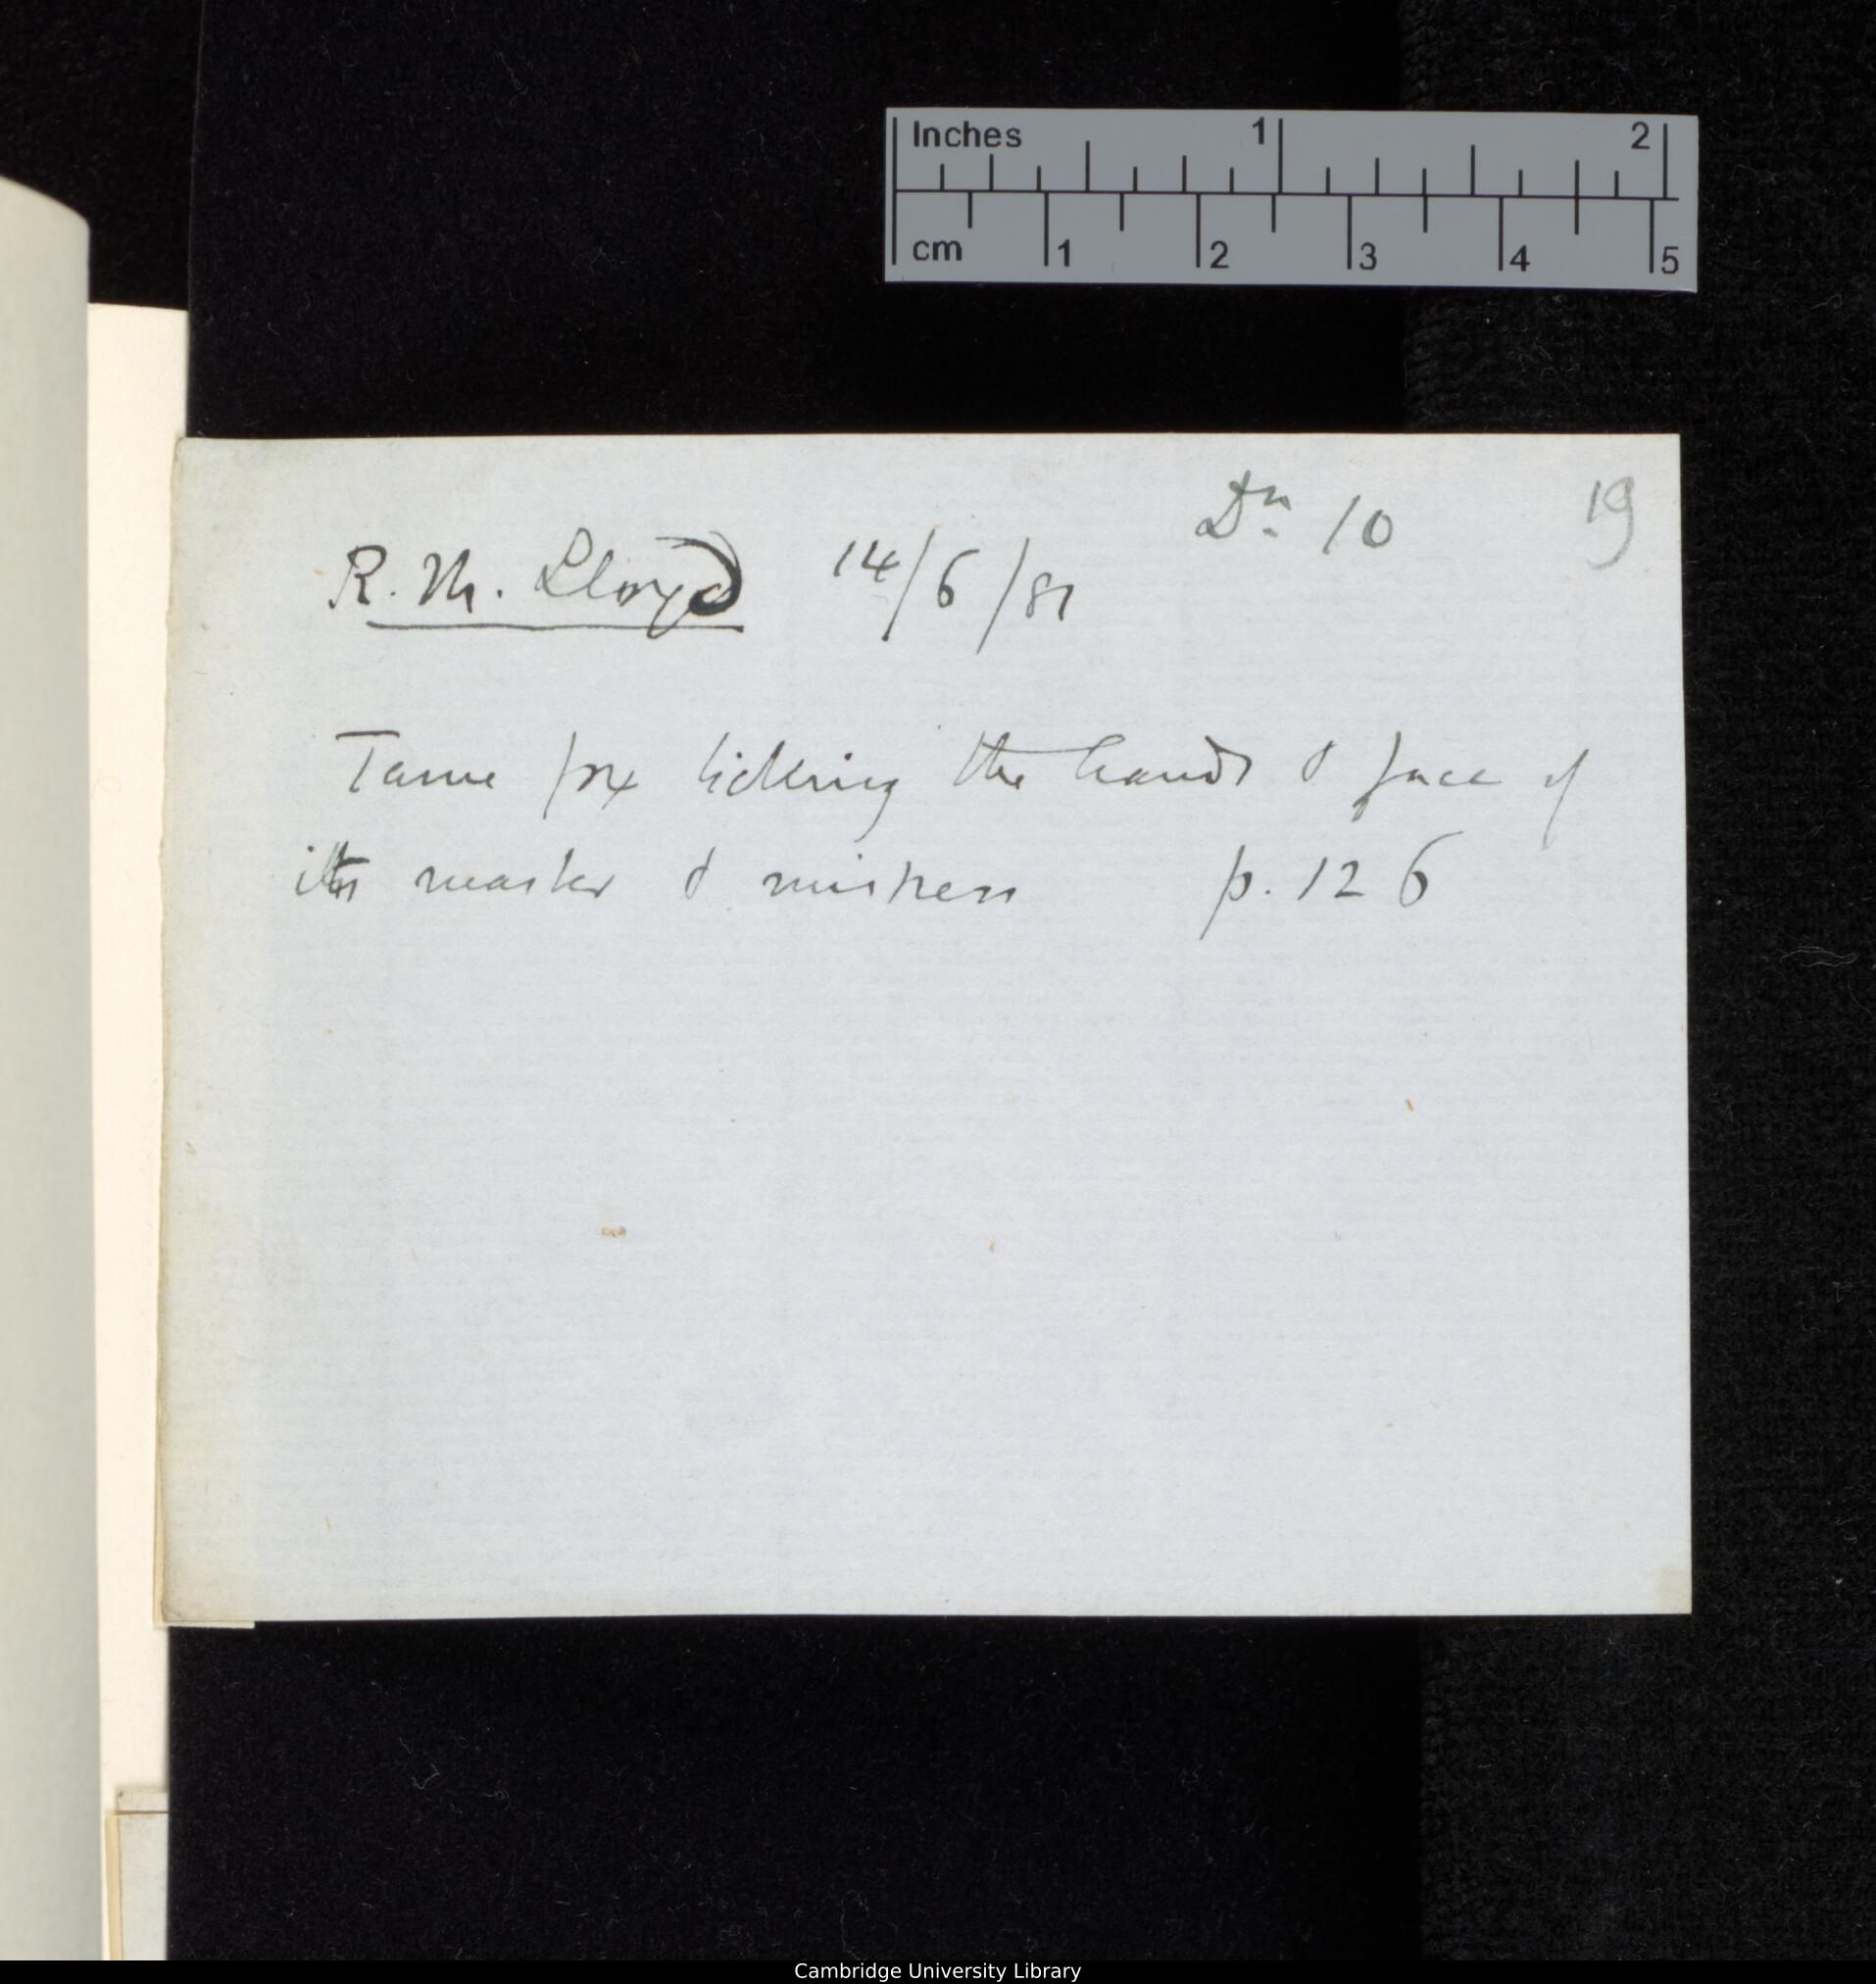 Inches 1 2
cm 1 2 3 4 5
Dn. 10 19
R. M. Lloyd 14/6/81
Tame fox licking the hands & face of
its master & mistress p. 126
Cambridge University Library